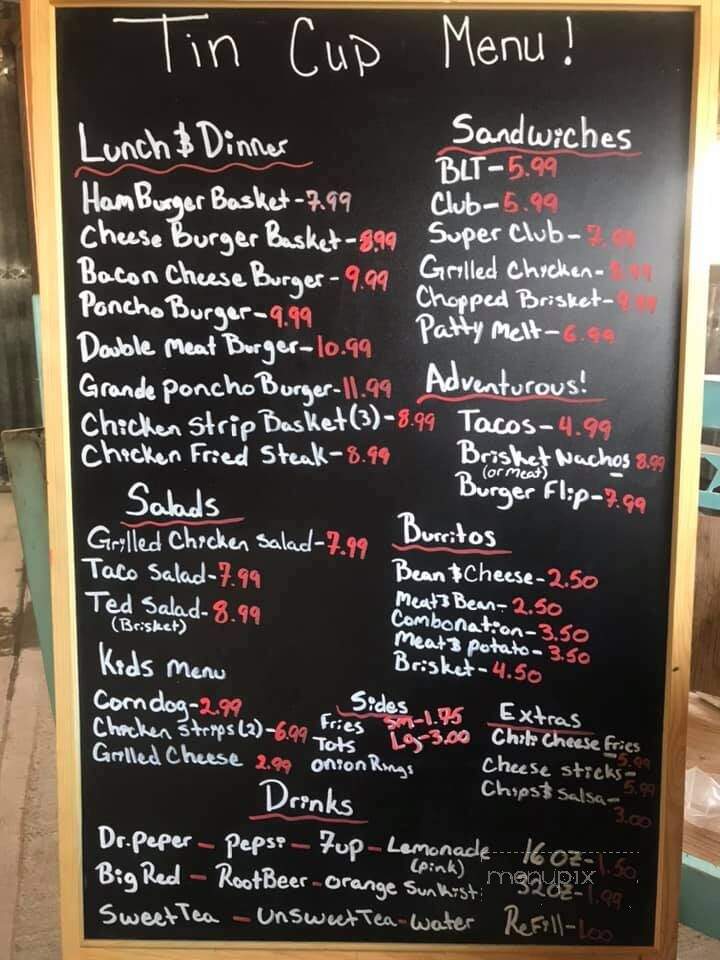 Tin Cup Menu!
Lunch $ Dinner
HamBurger Basket-7.99
Cheese Burger Basket-8.99
Bacon Cheese Burger-9.99
Poncho Burger-9.99
Double Meat Burger-10.99
Grande poncho Burger-11.99
Chicken Strip Basket(3)-8.99
Chicken Fried Steak-8.99
Sandwiches
BLT-5.99
Club-5.99
Super Club-7.99
Grilled Chicken-
Chopped Brisket-
Patty Melt-6.99
Adventurous!
Tacos-4.99
Brisket Nachos 8.99
(or meat)
Burger Flip-7.99
Salads
Grilled Chicken Salad-7.99
Taco Salad-7.99
Ted Salad-8.99
(Brisket)
Burritos
Bean $ Cheese-2.50
Meat $ Bean-2.50
Combonation-3.50
Meat $ potato-3.50
Brisket-4.50
Kids Menu
Corndog-2.99
Chicken Strips(2)-6.99
Grilled Cheese 2.99
Sides
Fries Sm-1.75
Tots Lg-3.00
onion Rings
Extras
Chili Cheese Fries
5.99
Cheese sticks-
5.99
Chips $ Salsa-
3.00
Drinks
Dr.peper - pepsi - 7up - Lemonade 16oz-1.50
(pink)
Big Red - RootBeer - orange Sunkist 32oz-1.99
Sweet Tea - Unsweet Tea - water Refill-1.00
menupix